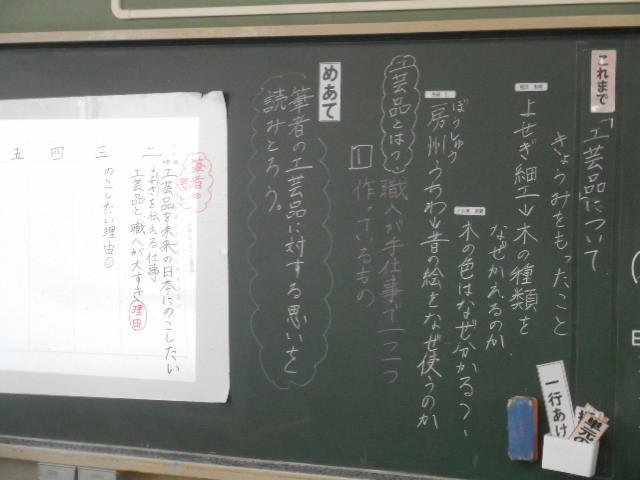 これまで
「工芸品について
きょうみをもったこと
よせぎ細工→木の種類を
なぜかえるのか
木の色はなぜ分かる
ぼうしゅう
房州うちわ→昔の絵をなぜ使うのか
工芸品とは
1
職人が手仕事で一つ一つ
作っているもの
めあて
筆者の工芸品に対する思いを
読みとろう。
筆者の
二
工芸品を未来の日本にのこしたい
よさを伝える仕事
工芸品と職人が大すき
理由
三
のこしたい理由①
四
五
一行あけ
単元の